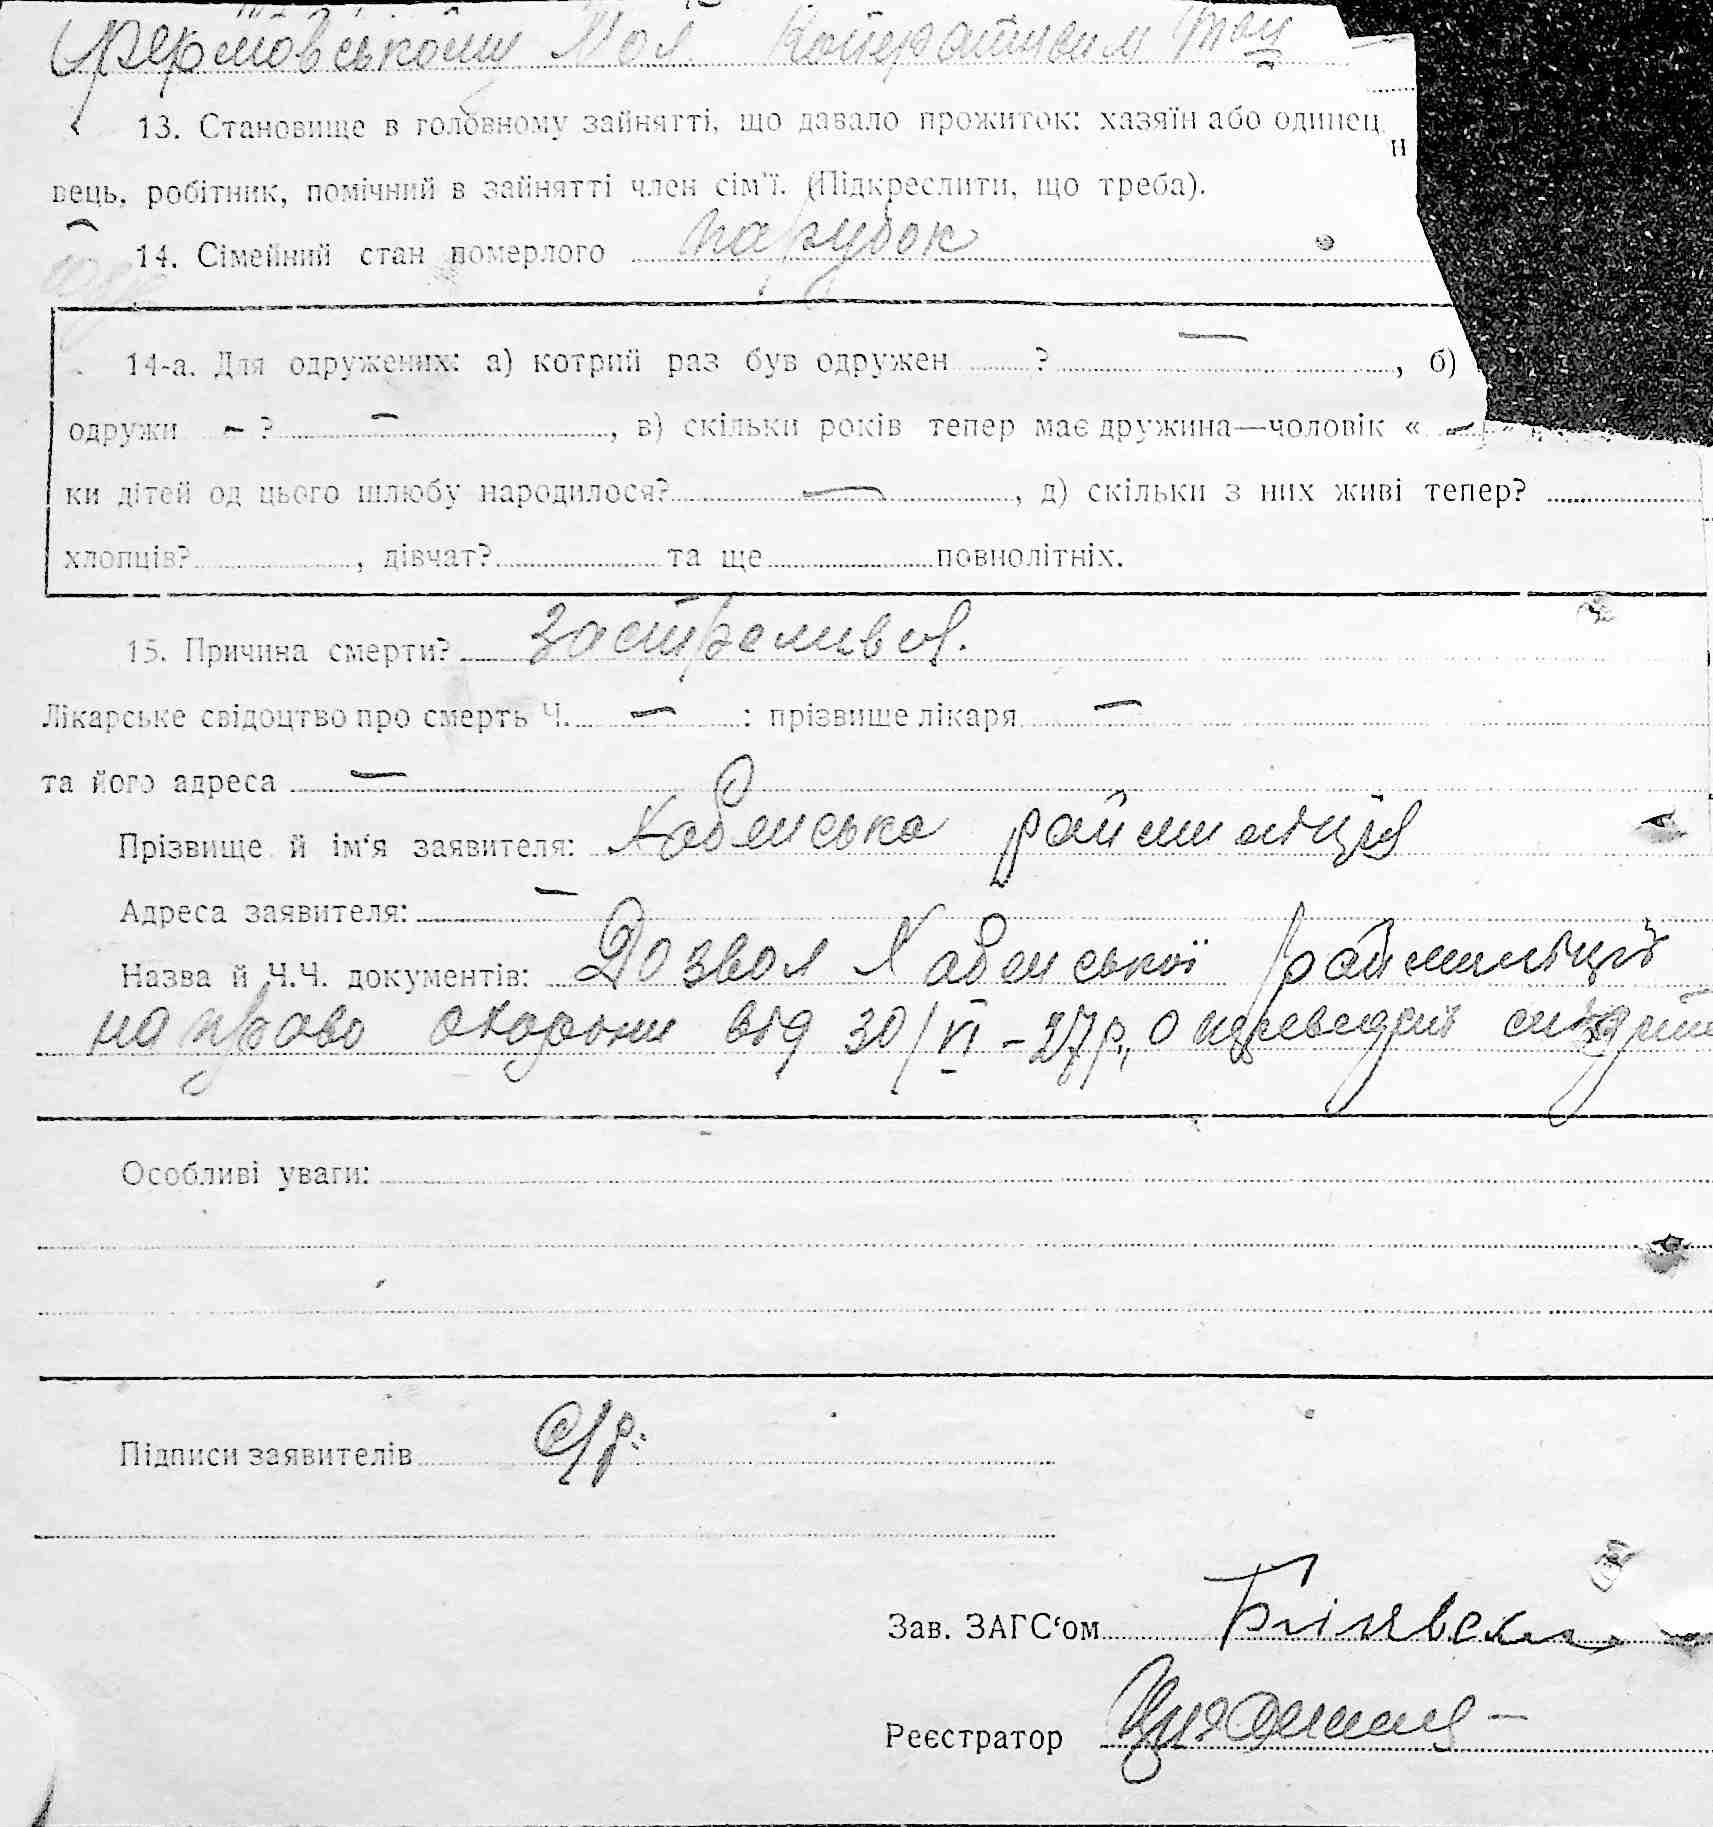 13. Становище в головному зайнятті, що давало прожиток: хазяїн або одинец,
и
вець, робітник, помічний в зайнятті член сім'ї. (Підкреслити, що треба).
14. Сімейний стан померлого парубок
14-а. Для одружених: а) котрий раз був одружен ? — , б)
одружи – ? — , в) скільки років тепер має дружина—чоловік « —
ки дітей од цього шлюбу народилося? — , д) скільки з них живі тепер?
хлопців? , дівчат? та ще повнолітніх.
15. Причина смерти? Застреливсь.
Лікарське свідоцтво про смерть Ч. — : прізвище лікаря —
та його адреса —
Прізвище й ім'я заявителя: Хабенська райміліція
Адреса заявителя: —
Назва й Ч.Ч. документів: Дозвол Хабенської райміліції
на право охорони від 30/VI – 27р., о
Особливі уваги:
Підписи заявителів с/р.
Зав. ЗАГС'ом
Реєстратор